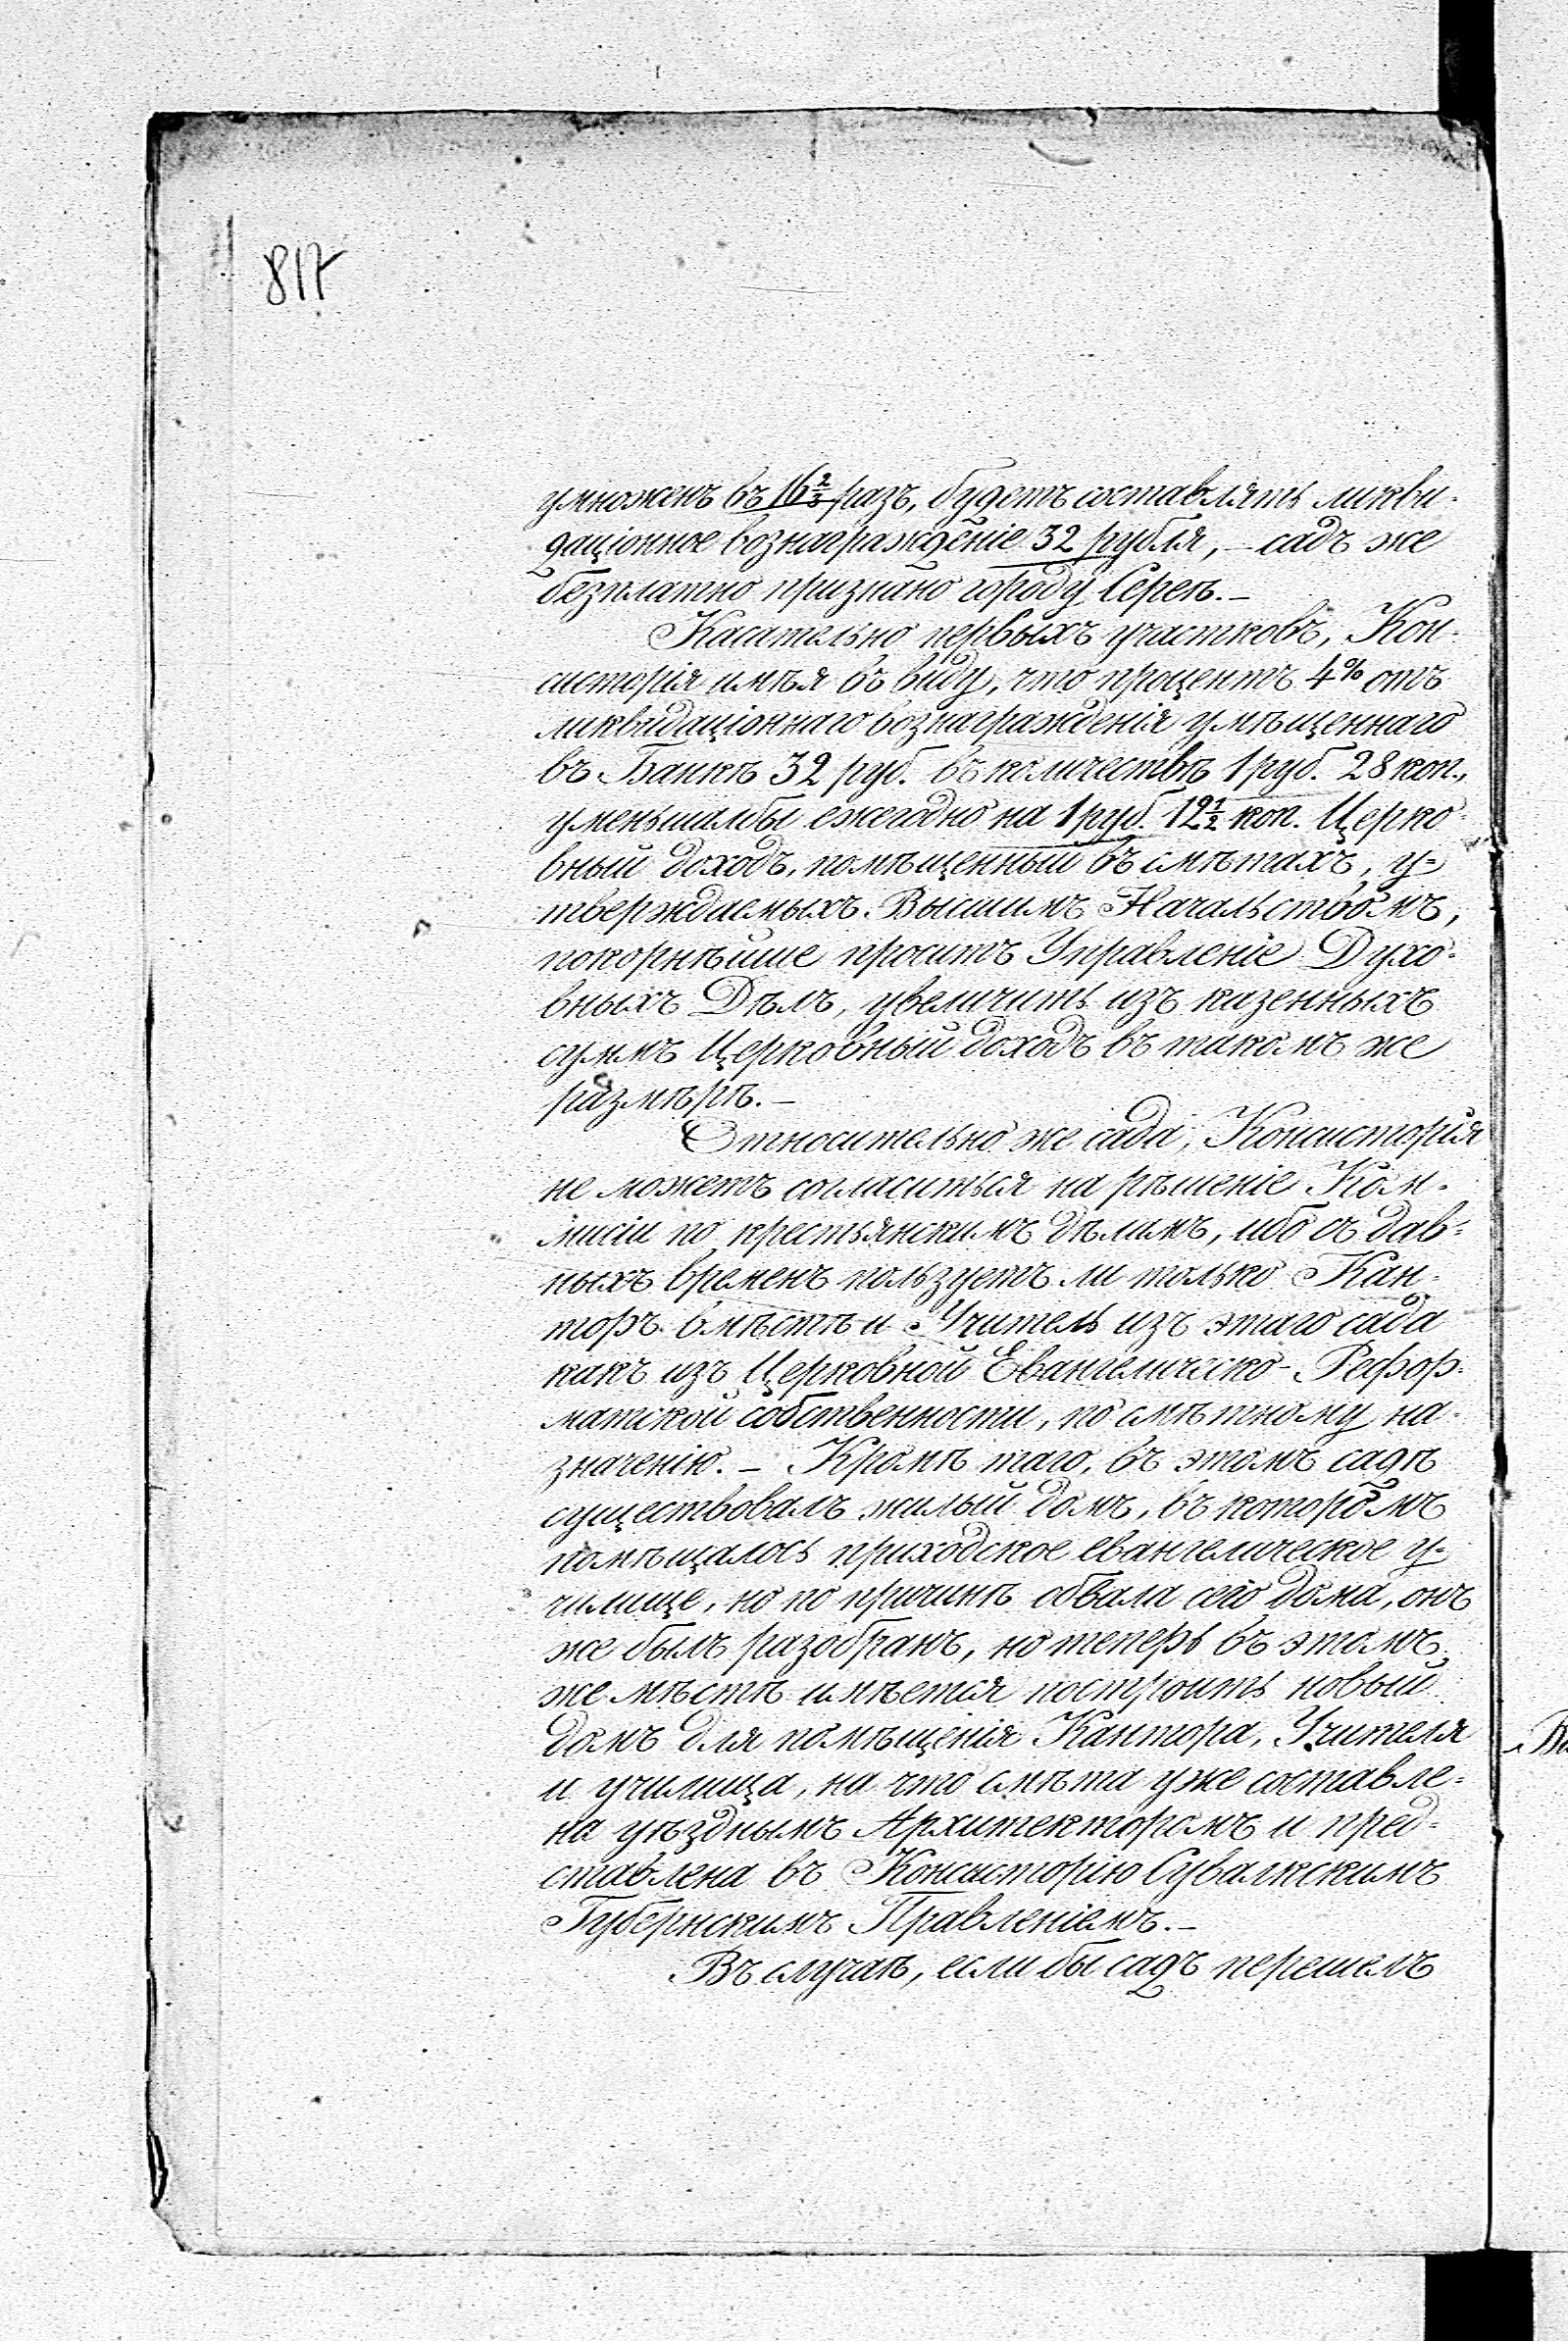 817
умноженъ въ 16 2/3 разъ, будетъ составлять ликви-
даціонное вознагражденіе 32 рубля, – садъ же
безплатно признано городу Сереѣ. –
Касательно первыхъ участковъ, Кон-
систорія имѣя въ виду, что процентъ 4% отъ
ликвидаціоннаго вознагражденія умѣщеннаго
въ Банкъ 32 руб. въ количествѣ 1 руб. 28 коп.,
уменьшалбы ежегодно на 1 руб. 12 1/2 коп. Церко-
вный доходъ, помѣщенный въ смѣтахъ, у-
тверждаемыхъ Высшимъ Начальствомъ,
покорнѣйше проситъ Управленіе Духо-
вныхъ Дѣлъ, увеличить изъ казенныхъ
суммъ Церковный доходъ въ такомъ же
размѣрѣ. –
Относительно же сада, Консисторія
не можетъ согласиться на рѣшеніе Ком-
мисіи по крестьянскимъ дѣламъ, ибо съ дав-
ныхъ временъ пользуетъ ли только Кан-
торъ вмѣстѣ и Учитель изъ этаго сада
какъ изъ Церковной Евангелическо-Рефор-
матской собственности, по смѣтному на-
значенію. – Кромѣ таго, въ этомъ садѣ
существовалъ жилый домъ, въ которомъ
помѣщалось приходское евангелическое у-
чилище, но по причинѣ обвала сего дома, онъ
же былъ разобранъ, но теперь въ этомъ
же мѣстѣ имѣется построить новый
домъ для помѣщенія Кантора, Учителя
и училища, на что смѣта уже составле-
на уѣзднымъ Архитекторомъ и пред-
ставлена въ Консисторію Сувалкскимъ
Губернскимъ Правленіемъ. –
Въ случаѣ, если бы садъ перешелъ